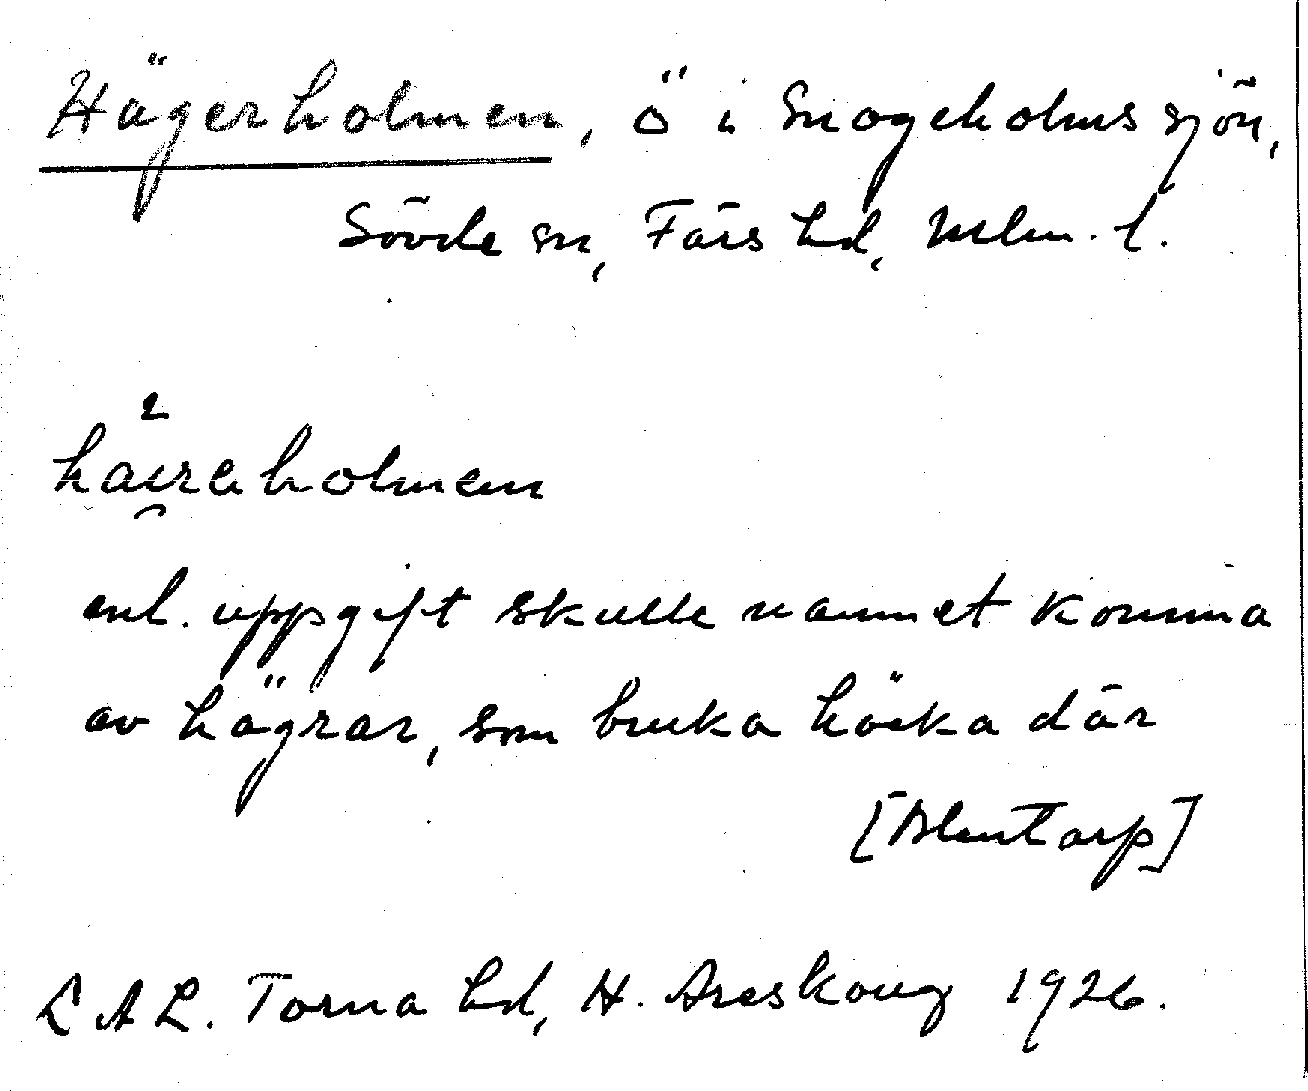 Hägerholmen, ö i Snogeholmssjön,
Sövde sn, Färs hd, Mlm. l.
häi̯raholmen
enl. uppgift skulle namnet komma
av hägrar, som bruka häcka där
[Blentarp]
LAL. Torna hd, H. Areskoug 1926.